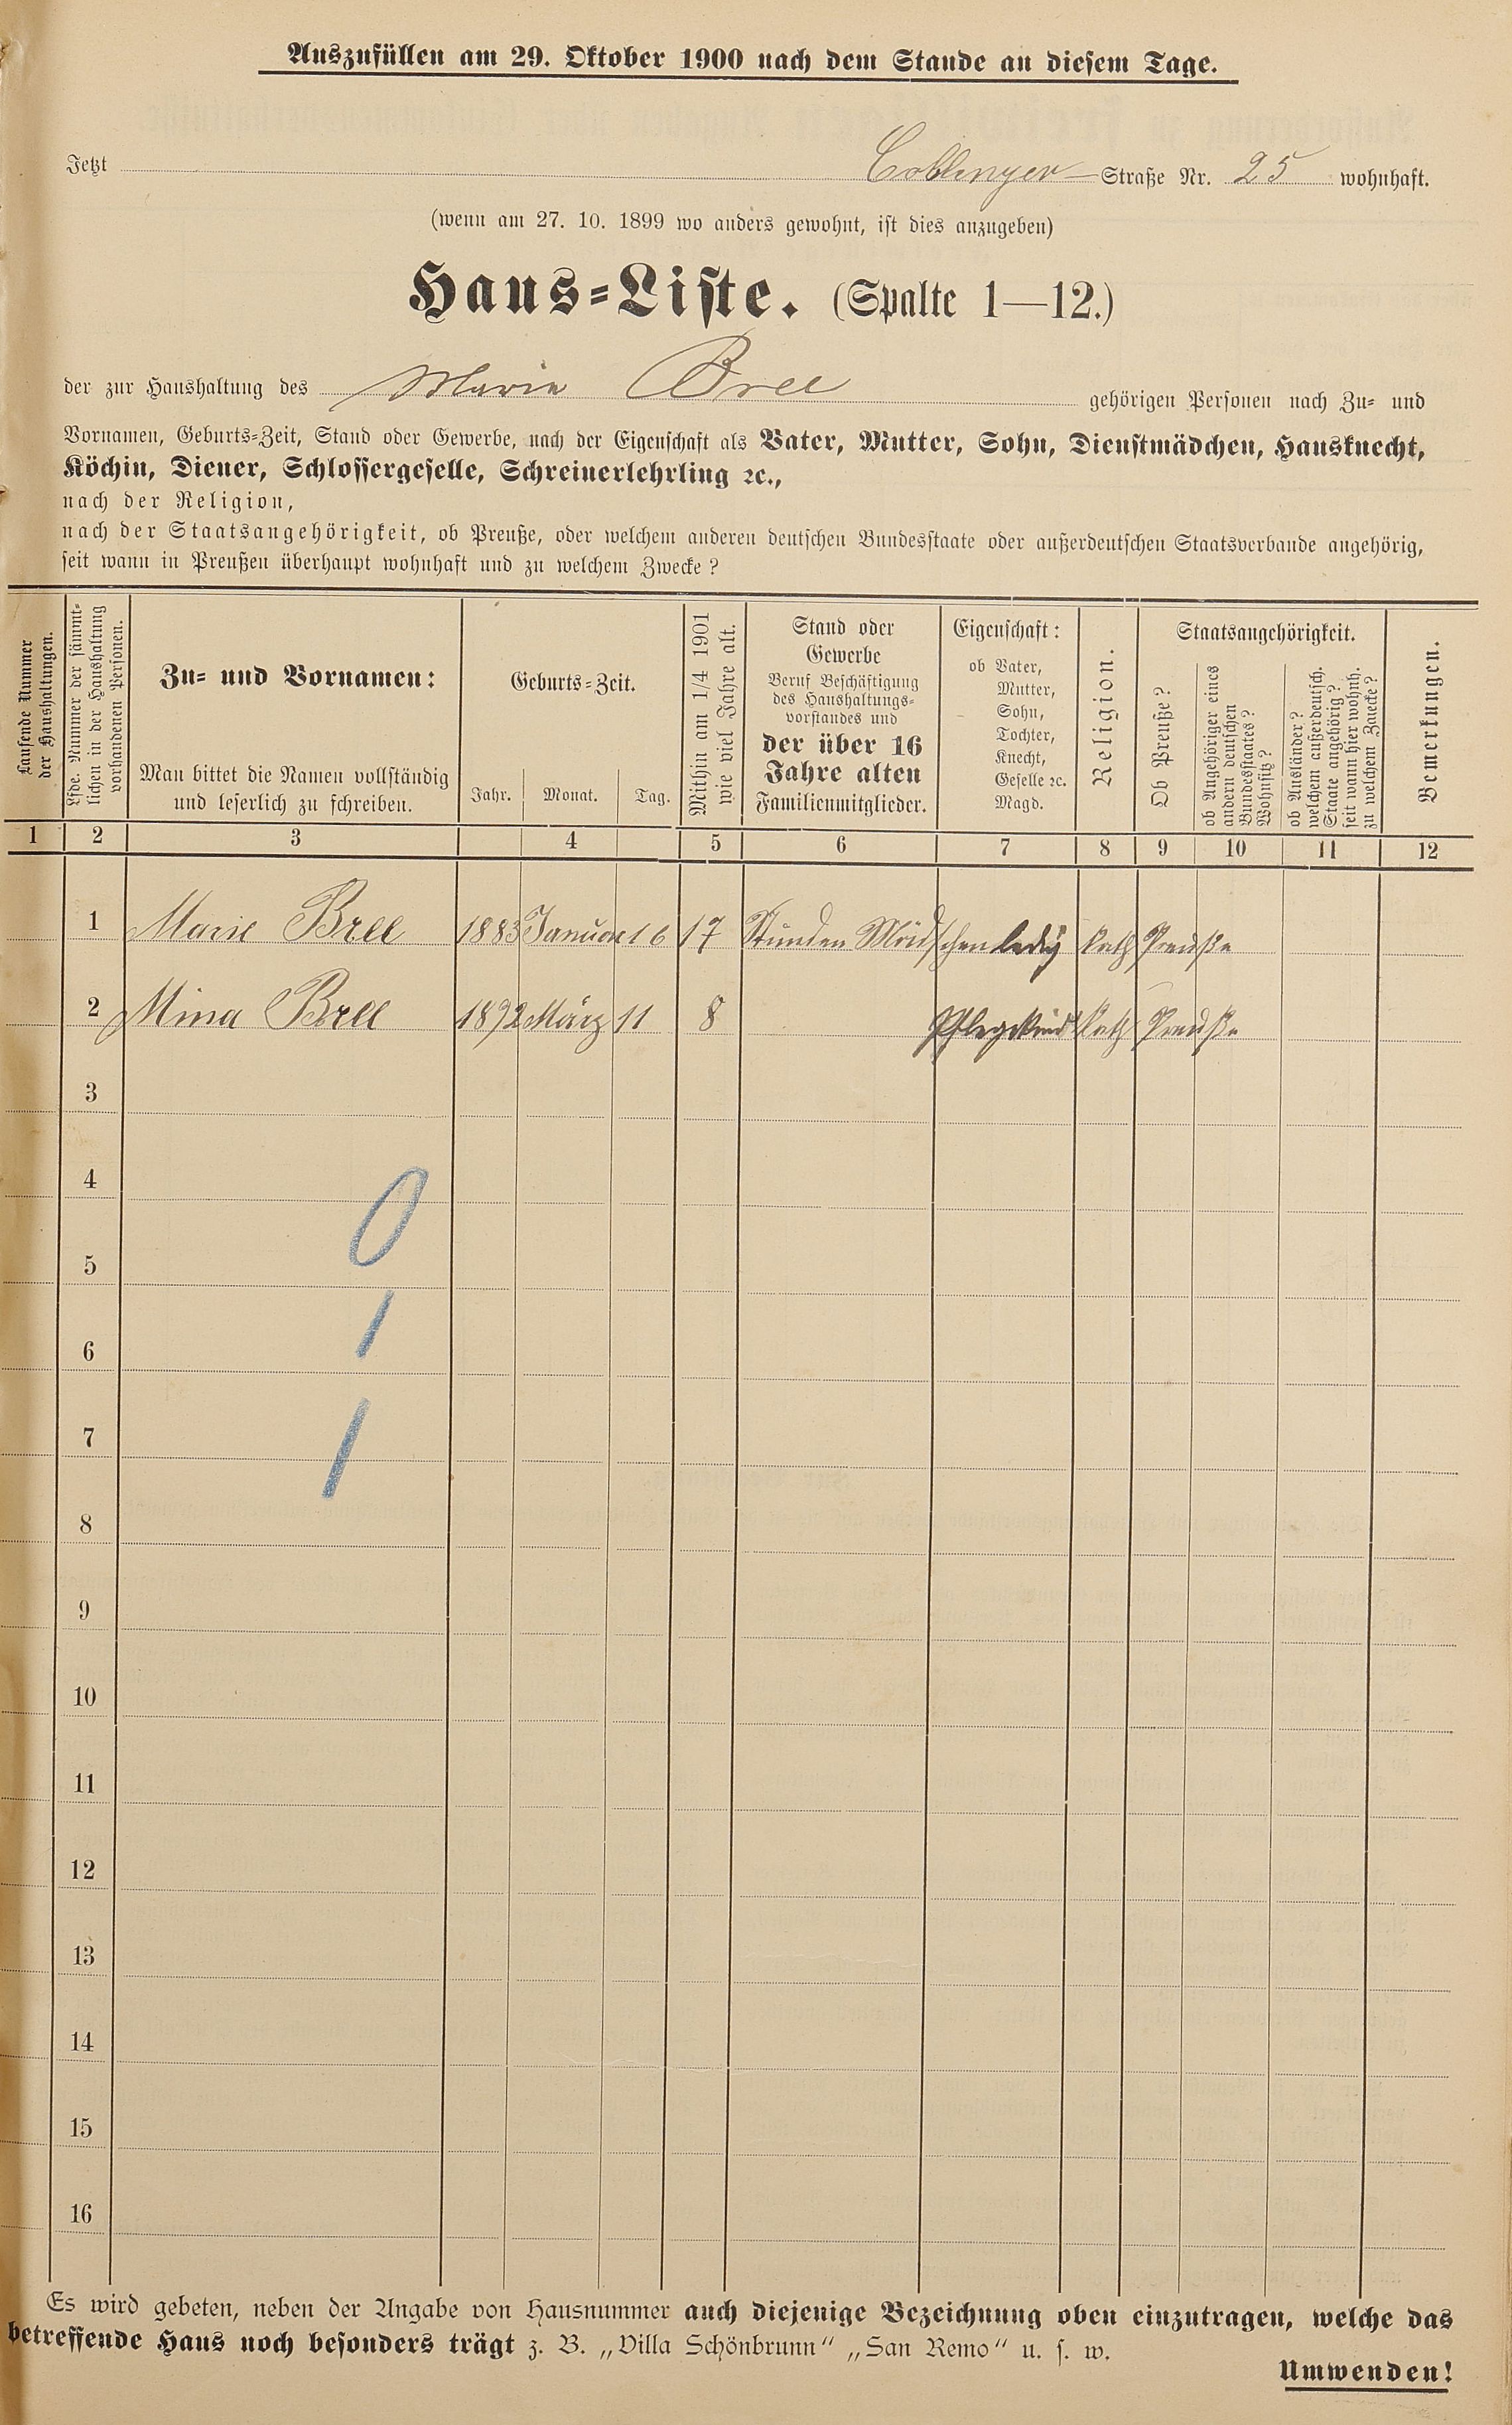 Auszufüllen am 29. Oktober 1900 nach dem Stande an diesem Tage.
Jetzt Coblenzer Straße Nr. 25 wohnhaft.
(wenn am 27. 10. 1899 wo anders gewohnt, ist dies anzugeben)
Haus-Liste. (Spalte 1—12.)
der zur Haushaltung des Marie Bree gehörigen Personen nach Zu- und
Vornamen, Geburts-Zeit, Stand oder Gewerbe, nach der Eigenschaft als Vater, Mutter, Sohn, Dienstmädchen, Hausknecht,
Köchin, Diener, Schlossergeselle, Schreinerlehrling ꝛc.,
nach der Religion,
nach der Staatsangehörigkeit, ob Preuße, oder welchem anderen deutschen Bundesstaate oder außerdeutschen Staatsverbande angehörig,
seit wann in Preußen überhaupt wohnhaft und zu welchem Zwecke?
Laufende Nummer
der Haushaltungen.
Lfde. Nummer der sämmt-
lichen in der Haushaltung
vorhandenen Personen.
Zu- und Vornamen:
Man bittet die Namen vollständig
und leserlich zu schreiben.
Geburts-Zeit.
Jahr. Monat. Tag.
Mithin am 1/4 1901
wie viel Jahre alt.
Stand oder
Gewerbe
Beruf Beschäftigung
des Haushaltungs-
vorstandes und
der über 16
Jahre alten
Familienmitglieder.
Eigenschaft:
ob Vater,
Mutter,
Sohn,
Tochter,
Knecht,
Geselle ꝛc.
Magd.
Religion.
Staatsangehörigkeit.
Ob Preuße?
ob Angehöriger eines
andern deutschen
Bundesstaates?
Wohnsitz?
ob Ausländer?
welchem außerdeutsch.
Staate angehörig?
seit wann hier wohnh.
zu welchem Zwecke?
Bemerkungen.
1 2 3 4 5 6 7 8 9 10 11 12
1 Marie Bree 1883 Januar 16 17 Stunden Mädschen ledig kath Preuße
2 Mina Bree 1892 März 11 8 Pflegekind kath Preuße
3
4
0
5
1
6
1
7
8
9
10
11
12
13
14
15
16
Es wird gebeten, neben der Angabe von Hausnummer auch diejenige Bezeichnung oben einzutragen, welche das
betreffende Haus noch besonders trägt z. B. „Villa Schönbrunn“ „San Remo“ u. s. w.
Umwenden!